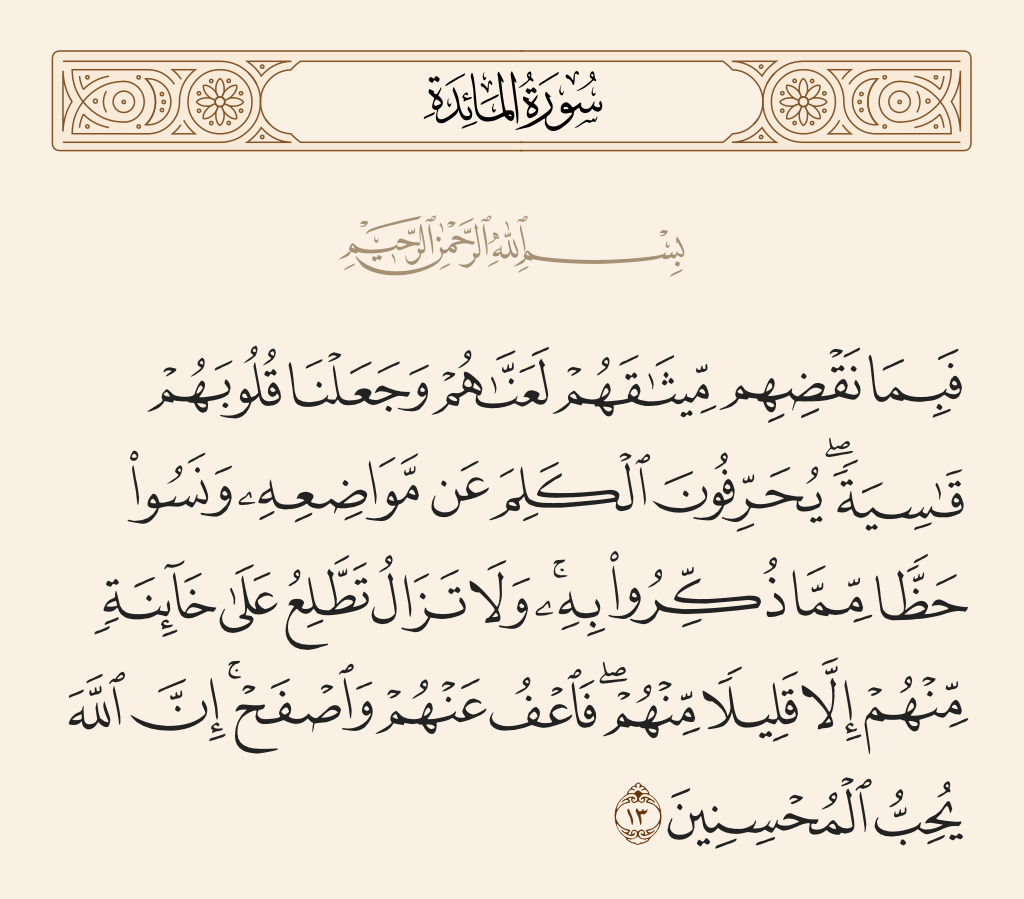 سُورَةُ المَائِدَةِ
بِسْمِ ٱللَّهِ ٱلرَّحْمَٰنِ ٱلرَّحِيمِ
فَبِمَا نَقْضِهِم مِّيثَـٰقَهُمْ لَعَنَّـٰهُمْ وَجَعَلْنَا قُلُوبَهُمْ
قَـٰسِيَةً ۖ يُحَرِّفُونَ ٱلْكَلِمَ عَن مَّوَاضِعِهِۦ ۙ وَنَسُوا۟
حَظًّا مِّمَّا ذُكِّرُوا۟ بِهِۦ ۚ وَلَا تَزَالُ تَطَّلِعُ عَلَىٰ خَآئِنَةٍ
مِّنْهُمْ إِلَّا قَلِيلًا مِّنْهُمْ ۖ فَٱعْفُ عَنْهُمْ وَٱصْفَحْ ۚ إِنَّ ٱللَّهَ
يُحِبُّ ٱلْمُحْسِنِينَ ١٣